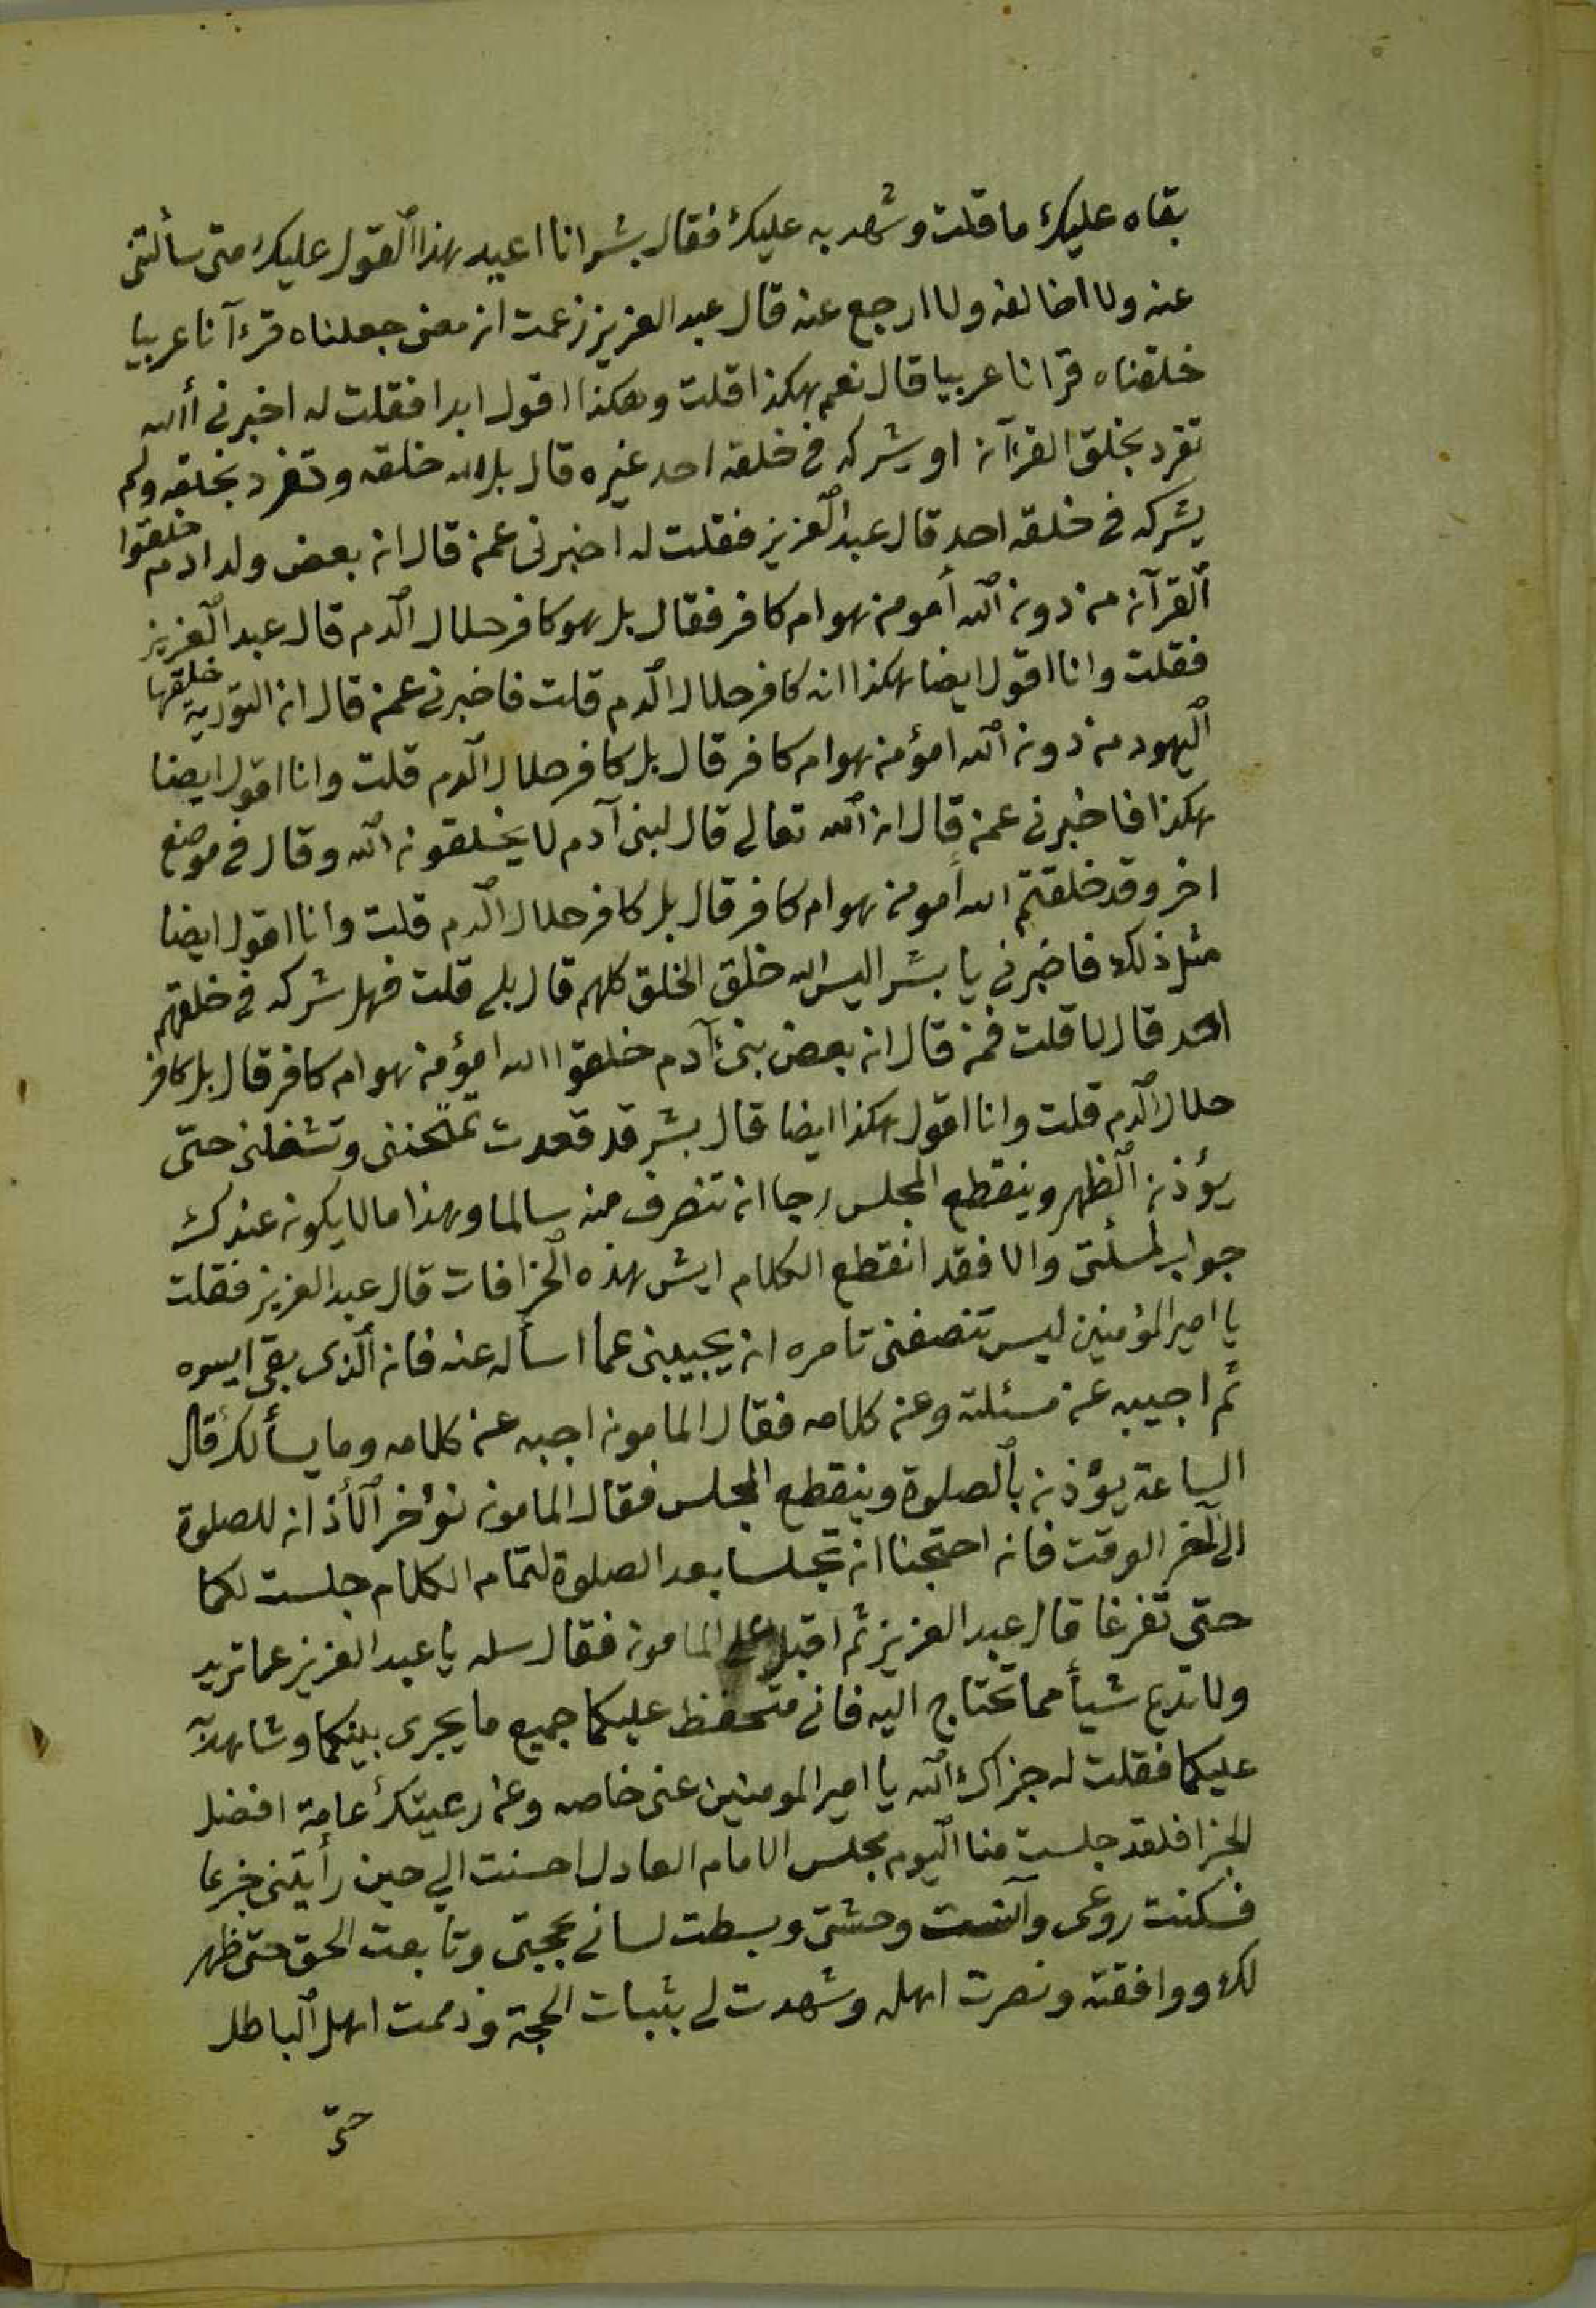 بقاه عليك ما قلت وشهد به عليك فقال بشر انا اعيد بهذا القول عليك متى سألتنى
عنه ولا اخالفه ولا ارجع عنه قال عبد العزيز زعمت ان معنى جعلناه قرءآنا عربيا
خلقناه قرانا عربيا قال نعم هكذا قلت وهكذا اقول ابدا فقلت له اخبرنى أالله
تفرد بخلق القرآن او يشركه فى خلقه احد غيره قال بل الله خلقه وتفرد بخلقه ولم
يشركه فى خلقه احد قال عبد العزيز فقلت له اخبرنى عمن قال ان بعض ولد ادم خلقوا
القرآن من دون الله أمومن هو ام كافر فقال بل هو كافر حلال الدم قال عبد العزيز
فقلت وانا اقول ايضا هكذا انه كافر حلال الدم قلت فاخبرنى عمن قال ان التورية خلقها
اليهود من دون الله امؤمن هو ام كافر قال بل كافر حلال الدم قلت وانا اقول ايضا
هكذا فاخبرنى عمن قال ان الله تعالى قال لبنى آدم لا يخلقون الله وقال فى موضع
اخر وقد خلقتم الله أمومن هو ام كافر قال بل كافر حلال الدم قلت وانا اقول ايضا
مثل ذلك فاخبرنى يا بشر اليس الله خلق الخلق كلهم قال بلى قلت فهل شركه فى خلقهم
احد قال لا قلت فمن قال ان بعض بنى آدم خلقوا الله امؤمن هو ام كافر قال بل كافر
حلال الدم قلت وانا اقول هكذا ايضا قال بشر قد قعدت تمتحننى وتشغلنى حتى
يؤذن الظهر وينقطع المجلس رجا ان تنصرف منه سالما وهذا ما لا يكون عندك
جواب لمسئلتى والا فقد انقطع الكلام ايش هذه الخرافات قال عبد العزيز فقلت
يا امير المؤمنين ليس تنصفنى تامره ان يجيبنى عما اسأله عنه فان الذى بقى ايسره
ثم اجيبه عن مسئلته وعن كلامه فقال المامون اجبه عن كلامه وما يسألك قال
الساعة يؤذن بالصلوة وينقطع المجلس فقال المامون نؤخر الأذان للصلوة
الى آخر الوقت فان احتجنا ان تجلسا بعد الصلوة لتمام الكلام جلست لكما
حتى تفرغا قال عبد العزيز ثم اقبل على المامون فقال سله يا عبد العزيز عما تريد
ولا تدع شيأ مما تحتاج اليه فانى متحفظ عليكما جميع ما يجرى بينكما وشاهد
عليكما فقلت له جزاك الله يا امير المومنين عنى خاصه وعن رعيتك عامة افضل
الجزا فلقد جلست منا اليوم مجلس الامام العادل احسنت الى حين رأيتنى جزعا
فسكنت روعى وآنست وحشتى وبسطت لسانى بحجتى وتابعت الحق حتى ظهر
لك ووافقته ونصرت اهله وشهدت لى بثبات الحجة وذممت اهل الباطل
حتى